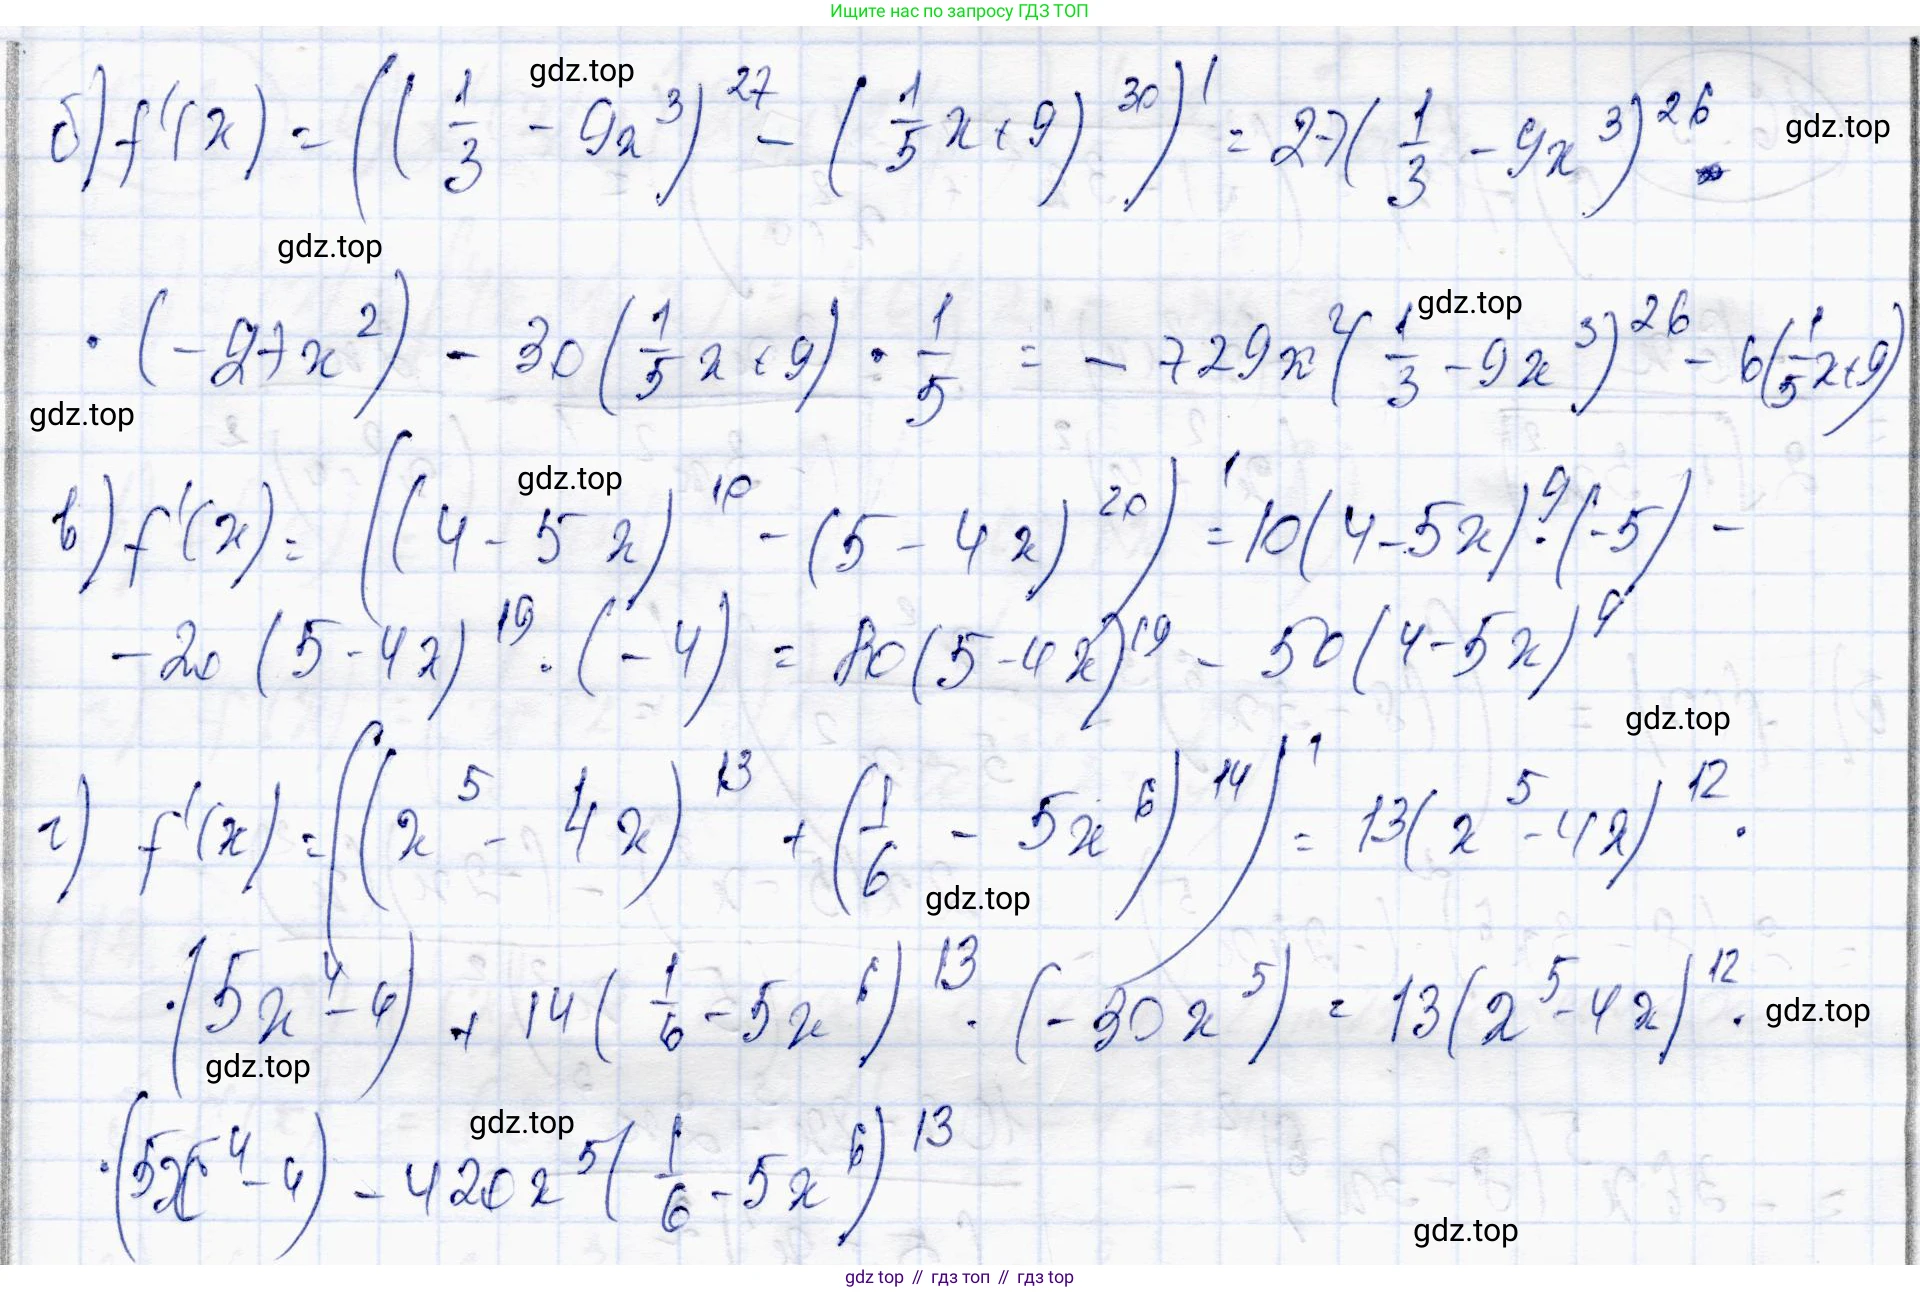 Ищите нас по запросу ГДЗ ТОП
gdz.top
б) f'(x) = ((1/3 - 9x³)²⁷ - (1/5 x + 9)³⁰)' = 27(1/3 - 9x³)²⁶ ·
gdz.top
gdz.top
· (-27x²) - 30(1/5 x + 9) · 1/5 = -729x²(1/3 - 9x³)²⁶ - 6(1/5 x + 9)
gdz.top
gdz.top
gdz.top
в) f'(x) = ((4 - 5x)¹⁰ - (5 - 4x)²⁰)' = 10(4 - 5x)⁹ · (-5) -
- 20(5 - 4x)¹⁹ · (-4) = 80(5 - 4x)¹⁹ - 50(4 - 5x)⁹
gdz.top
г) f'(x) = ((x⁵ - 4x)¹³ + (1/6 - 5x⁶)¹⁴)' = 13(x⁵ - 4x)¹² ·
gdz.top
· (5x⁴ - 4) + 14(1/6 - 5x⁶)¹³ · (-30x⁵) = 13(x⁵ - 4x)¹² ·
gdz.top
gdz.top
gdz.top
· (5x⁴ - 4) - 420x⁵(1/6 - 5x⁶)¹³
gdz.top
gdz top // гдз топ // гдз top